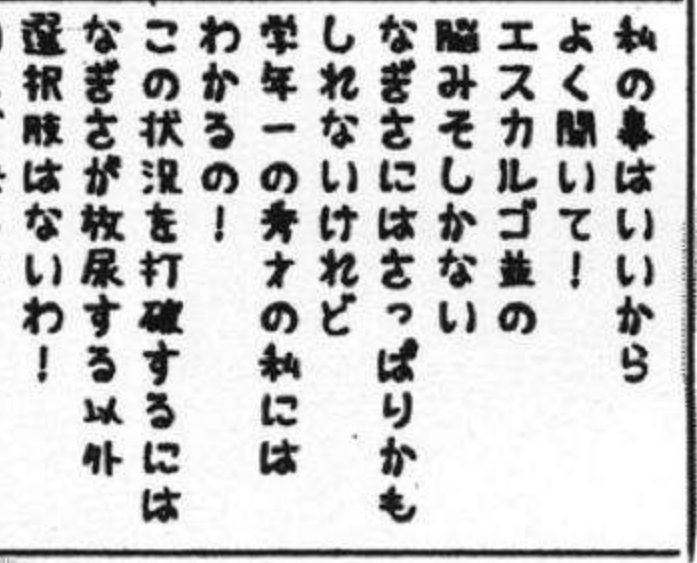 私の事はいいから
よく聞いて！
エスカルゴ並の
脳みそしかない
なぎさにはさっぱりかも
しれないけれど
学年一の秀才の私には
わかるの！
この状況を打破するには
なぎさが放尿する以外
選択肢はないわ！